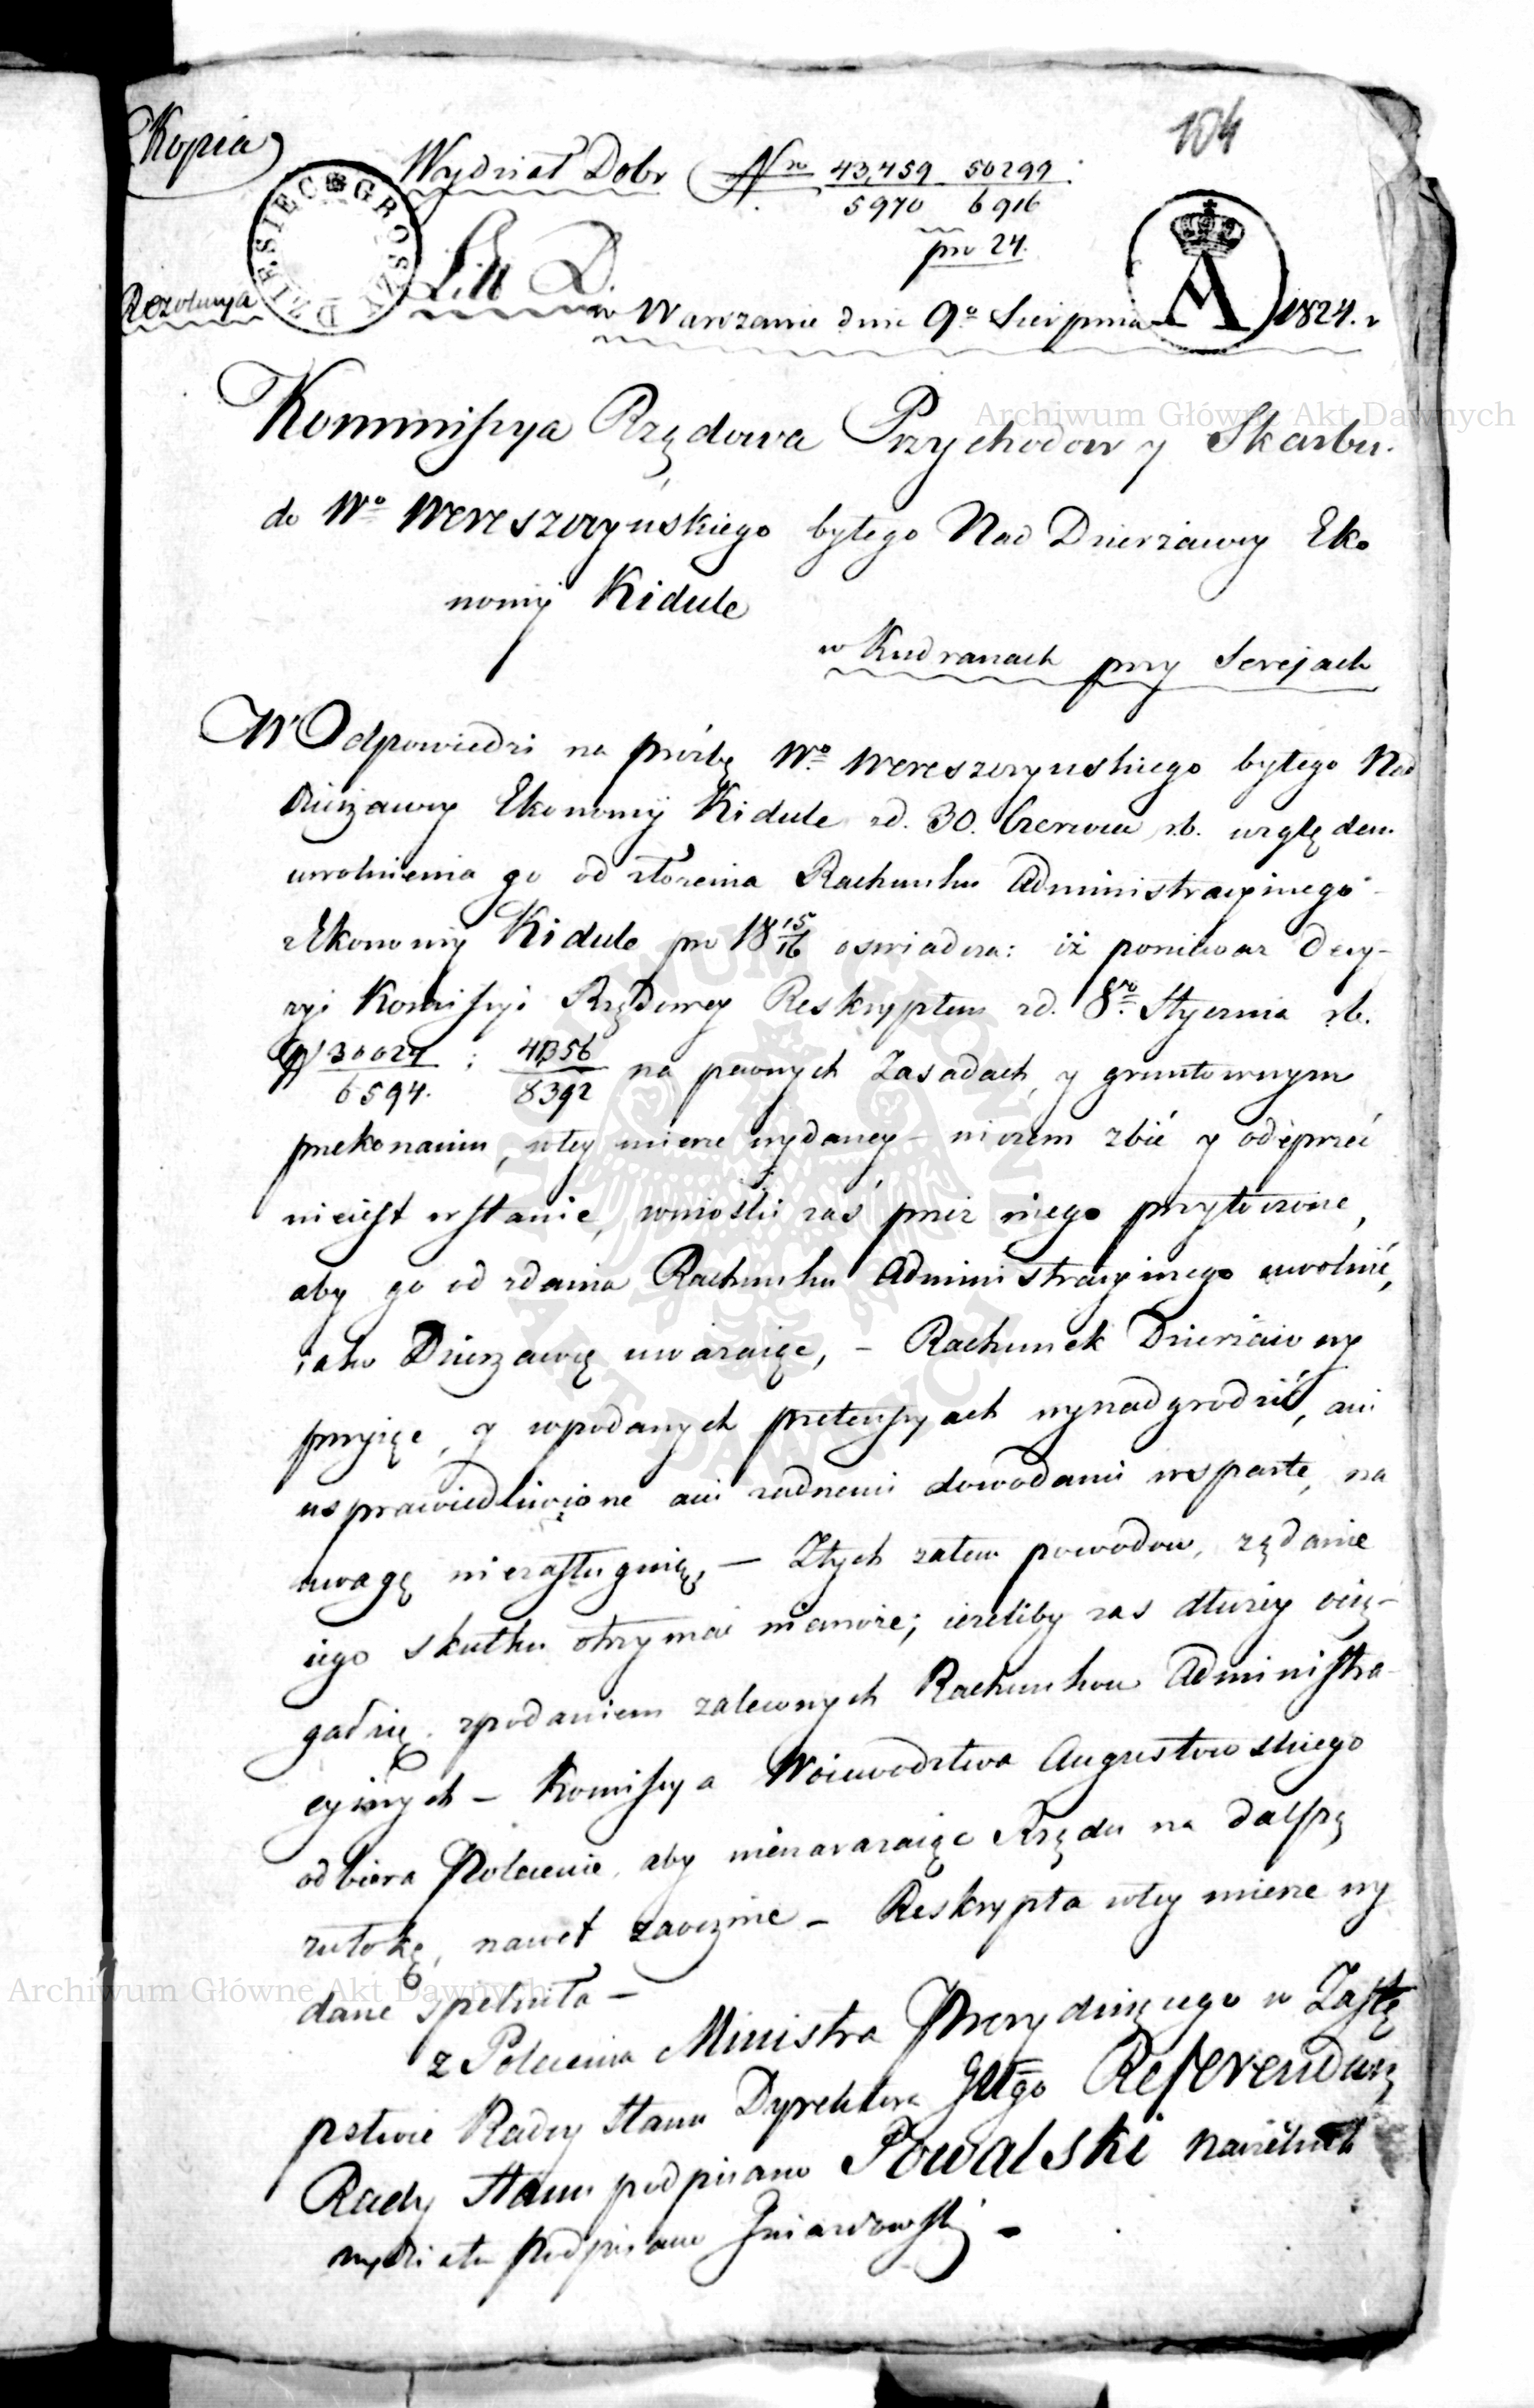 104
Kopia
Wydział Dobr Nro 43,459 50299
5970 6916
pro 24.
DZIESIEC GROSZY
Litt D.
A
Rezolucya
w Warszawie dnia 9o Sierpnia 1824. r
Kommissya Rządowa Przychodow y Skarbu.
do Wo Wereszczyńskiego byłego Nad Dzierżawcy Eko
nomij Kidule
w Kudranach przy Serejach
W Odpowiedzi na prózbę Wo Wereszczynskiego byłego Nad
Dzierżawcy Ekonomij Kidule zd. 30. Czerwca r.b. względem
uwolnienia go od złożenia Rachunku Administracyinego
z Ekonomij Kidule pro 18 15/16 oswiadcza: iż poniewaz decy-
zyi Komissyi Rządowey Reskryptem zd. 8ro Stycznia r.b.
N 30024 : 41356 na pewnych Zasadach y gruntownym
6594. 8392
przekonaniu, wtey mierze wydaney - niczem zbić y odeprzeć
nieiest wstanie, wnioski zaś przez niego przytoczone,
aby go od zdania Rachunku Administracyinego uwolnić,
iako Dzierzawcę uwazaiąc, - Rachunek Dzierżawny
przyiąc, y wpodanych pretensyach wynadgrodzić, ani
usprawiedliwione ani zadnemi dowodami wsparte, na
uwagę niezasługuią, - Ztych zatem powodow, ządanie
iego skutku otrzymać niemoże; iezeliby zas dłużey ocią-
gał się zpodaniem zalewnych Rachunkow Administra-
cyinych - Komissya Woiewodztwa Augustowskiego
odbiera Polecenie, aby niezwazaiąc Rządu na dalszą
zwłokę, nawet zaocznie - Reskrypta wtey mierze wy
dane spełniła -
z Polecenia Ministra Prezyduiącego w Zastę
pstwie Radcy Stanu Dyrektora Glgo Referendarz
Rady Stanu podpisano Kowalski Naczelnik
wydziału podpisano
Archiwum Główne Akt Dawnych
Archiwum Główne Akt Dawnych
ARCHIWUM GŁÓWNE AKT DAWNYCH